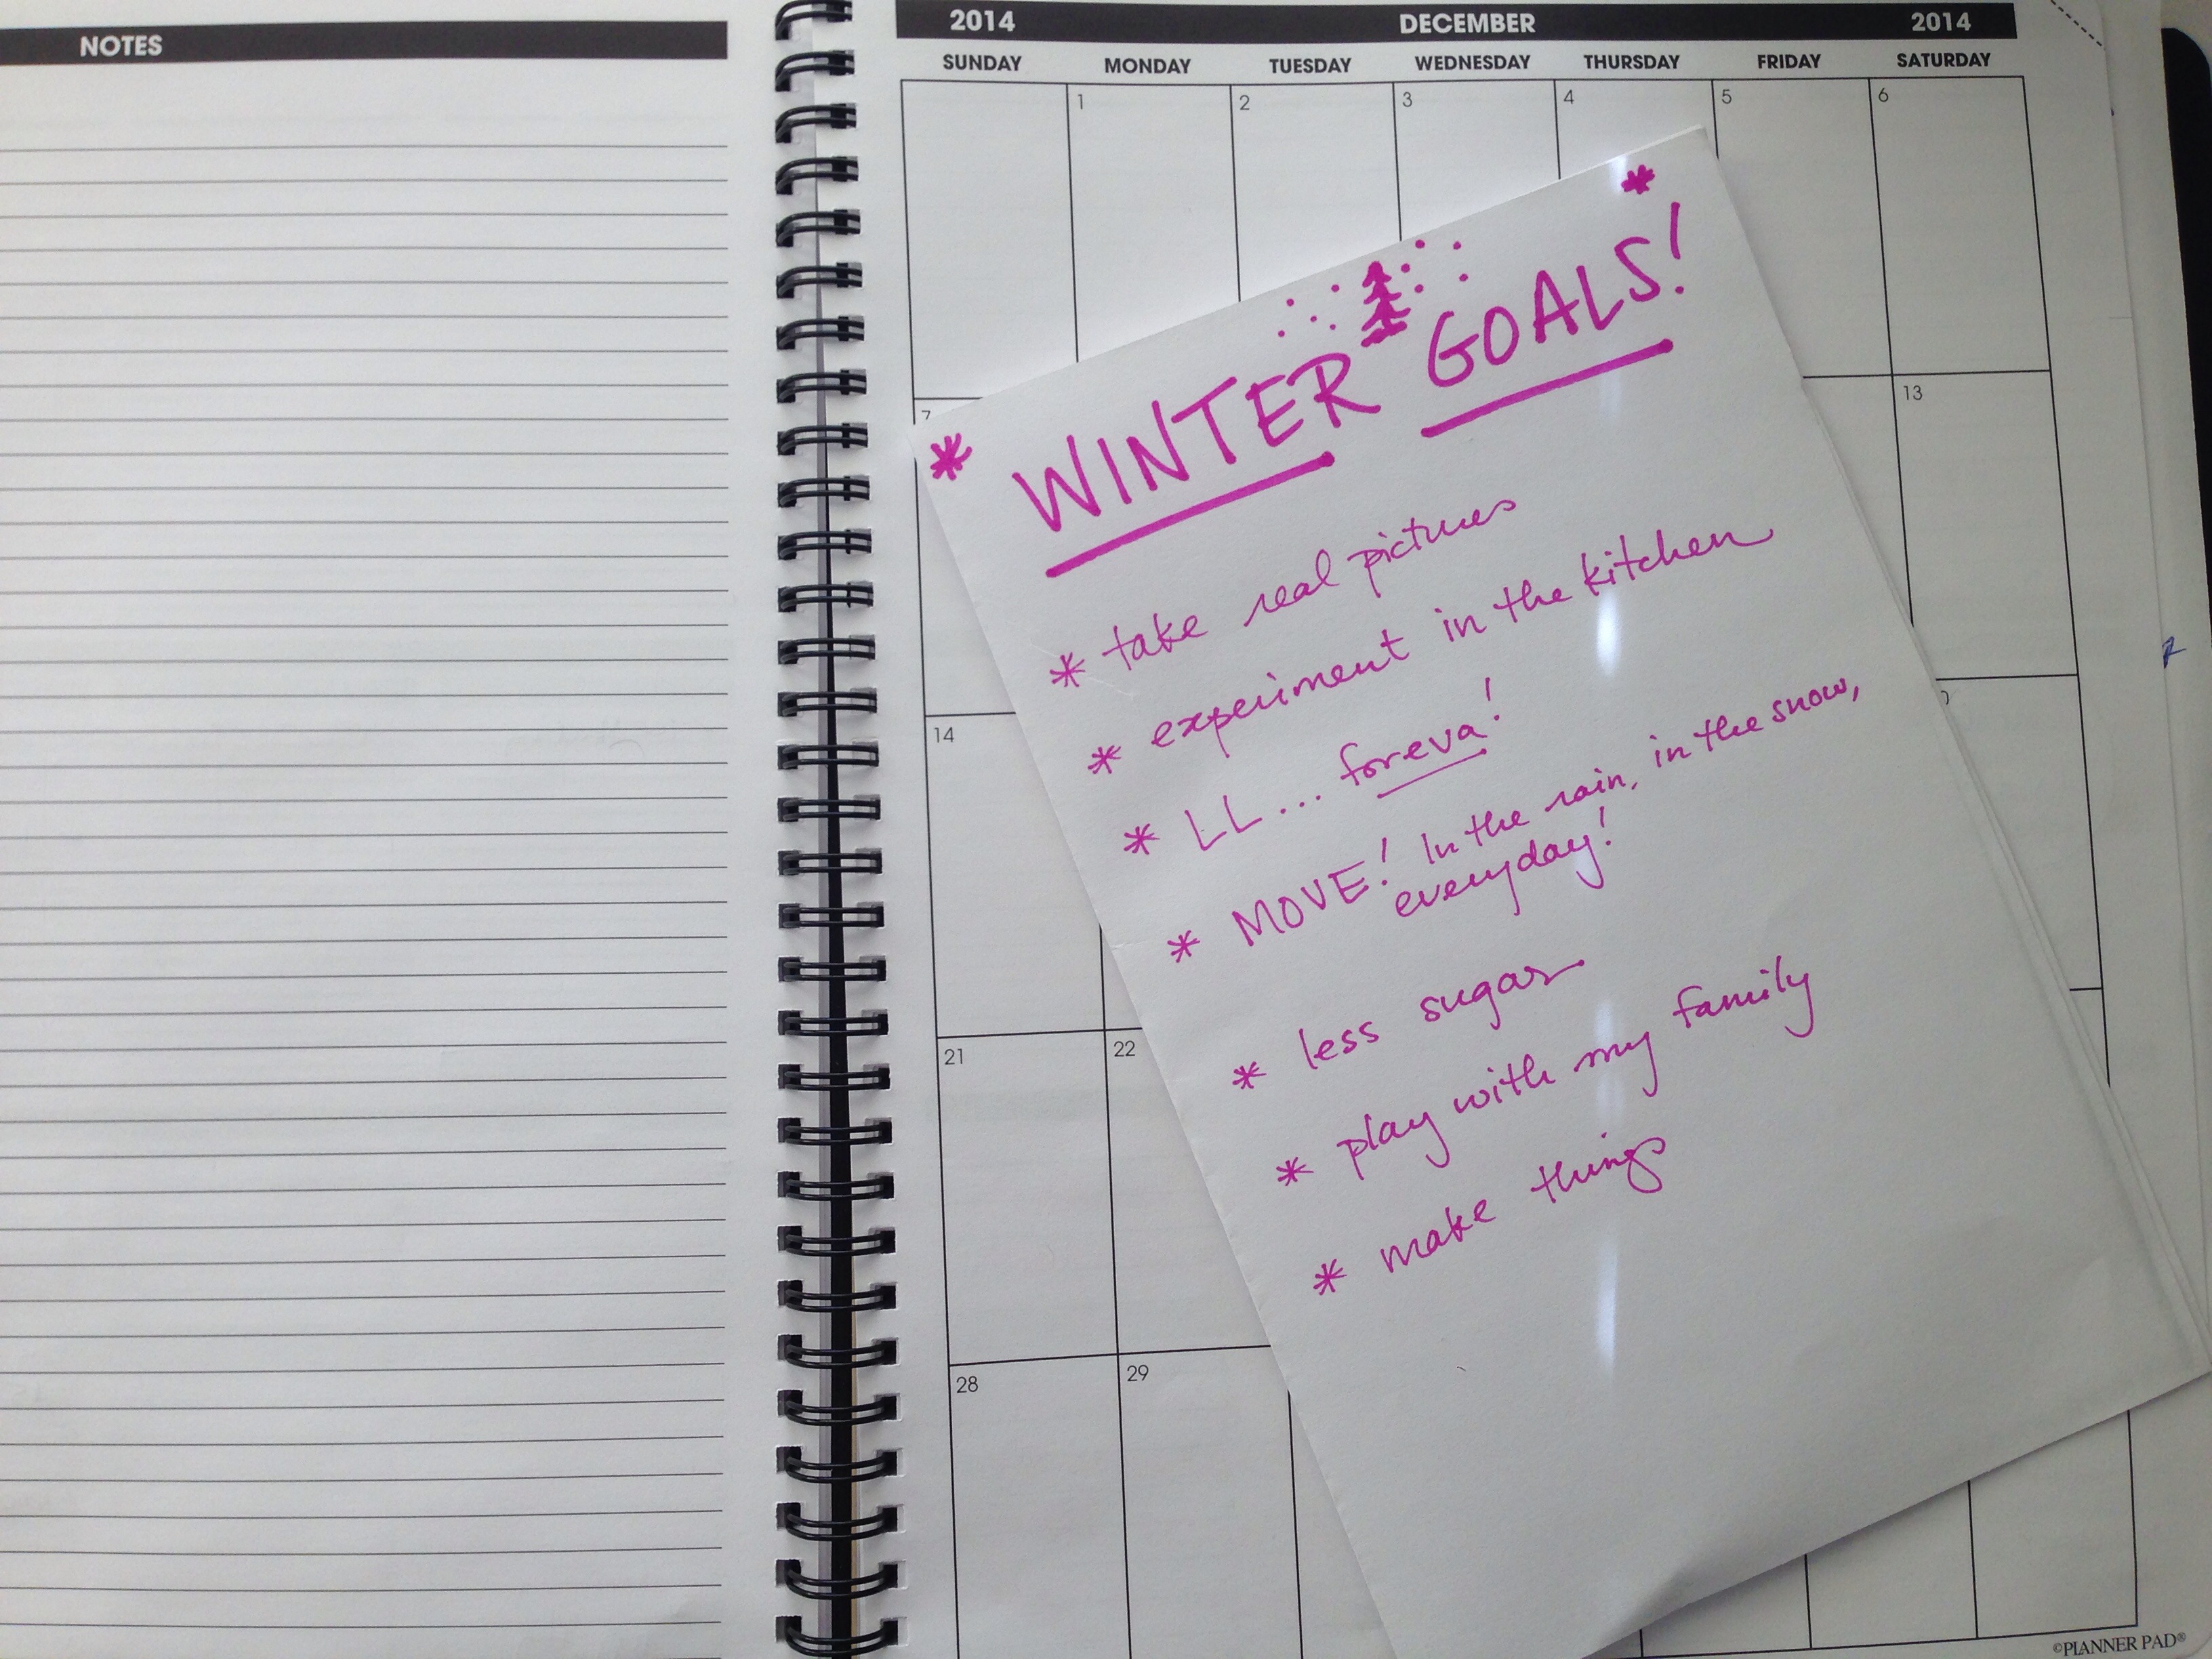 NOTES
2014 DECEMBER 2014
SUNDAY MONDAY TUESDAY WEDNESDAY THURSDAY FRIDAY SATURDAY
1 2 3 4 5 6
7 13
14
21 22
28 29
* WINTER GOALS! *
* take real pictures
* experiment in the kitchen
* LL... foreva!
* MOVE! In the rain, in the snow,
everyday!
* less sugar
* play with my family
* make things
©PLANNER PAD®